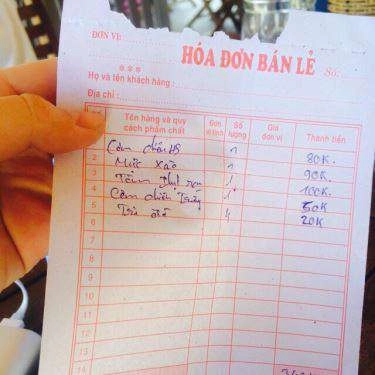 ĐƠN VỊ:
HÓA ĐƠN BÁN LẺ Số:
Họ và tên khách hàng:
Địa chỉ:
Tên hàng và quy cách phẩm chất Đơn vị tính Số lượng Giá đơn vị Thành tiền
Cơm 1 80K.
2 Mực xào 1 90K.
3 Tôm 1 100K.
4 Cơm chiên 1 50K
5 Trà đá 4 20K
6
7
8
9
10
11
12
13
14